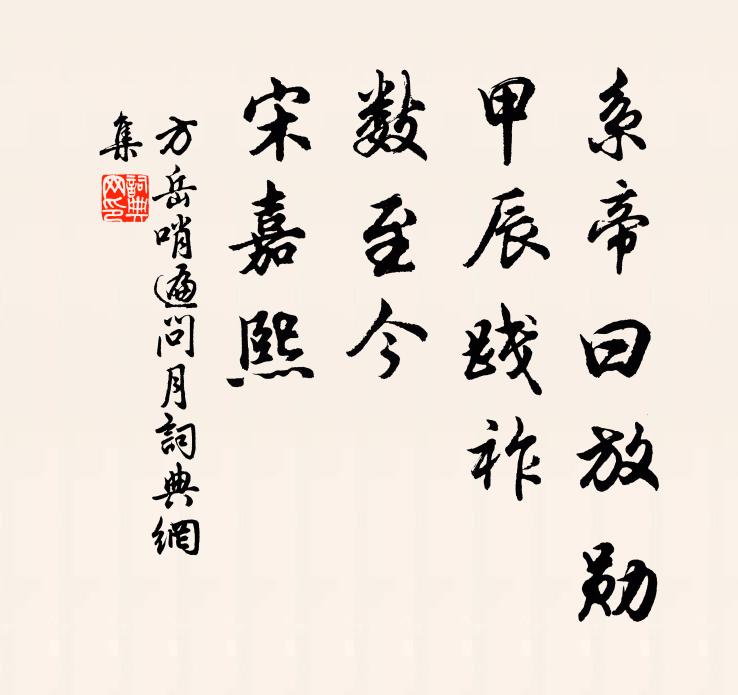 系帝曰放勋
甲辰践祚
数至今
宋嘉熙
方岳哨遍問月詞典網
集
詞典網印